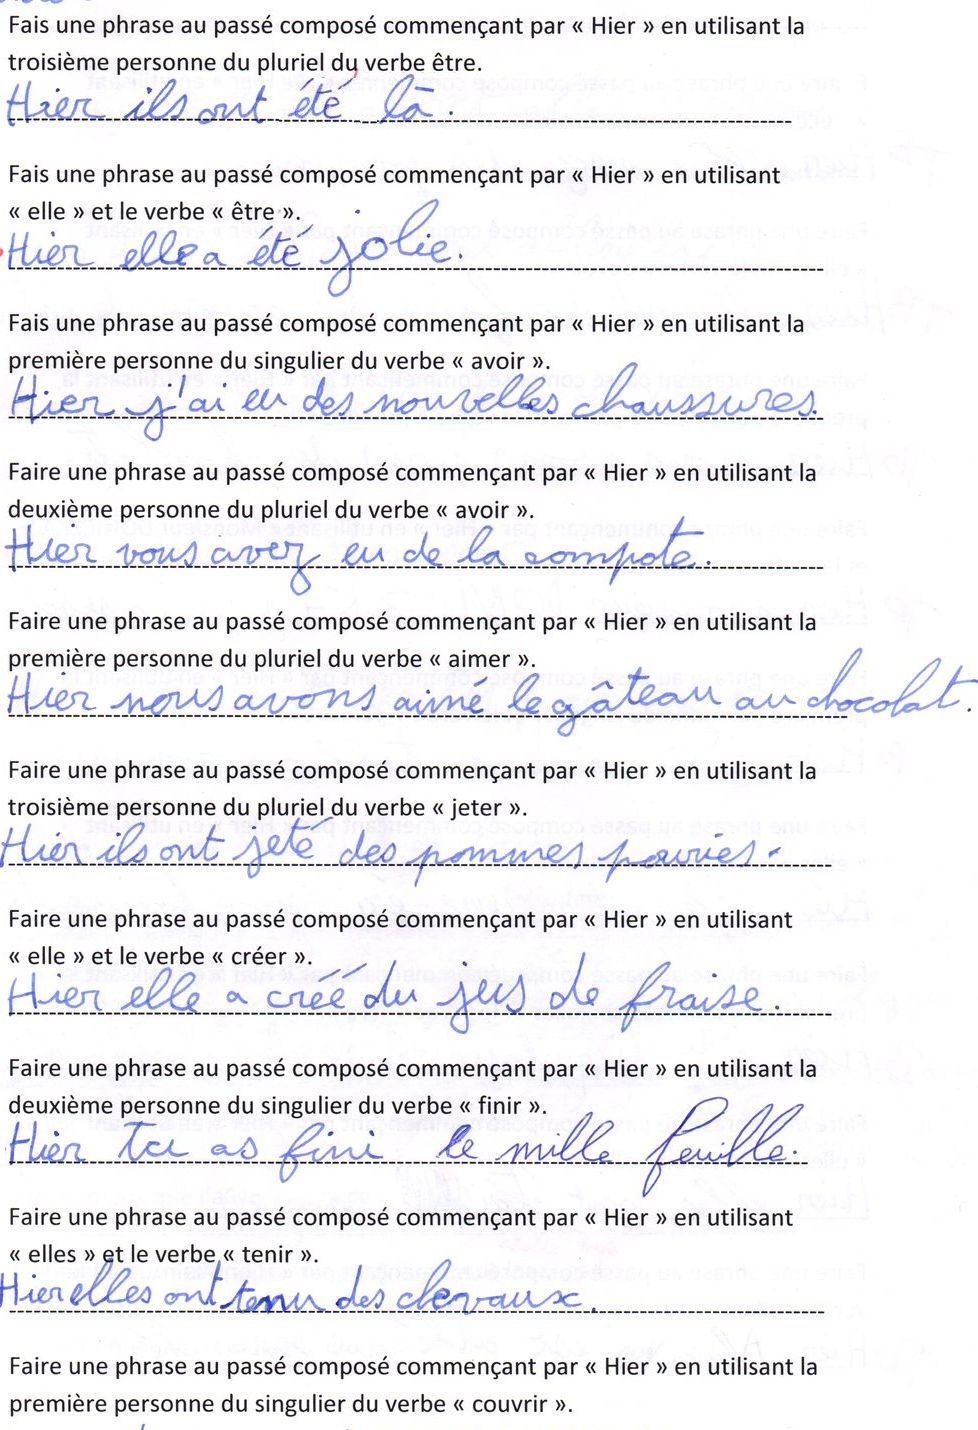 Fais une phrase au passé composé commençant par « Hier » en utilisant la
troisième personne du pluriel du verbe être.
Hier ils ont été là.
Fais une phrase au passé composé commençant par « Hier » en utilisant
« elle » et le verbe « être ».
Hier elle a été jolie.
Fais une phrase au passé composé commençant par « Hier » en utilisant la
première personne du singulier du verbe « avoir ».
Hier j'ai eu des nouvelles chaussures.
Faire une phrase au passé composé commençant par « Hier » en utilisant la
deuxième personne du pluriel du verbe « avoir ».
Hier vous avez eu de la compote.
Faire une phrase au passé composé commençant par « Hier » en utilisant la
première personne du pluriel du verbe « aimer ».
Hier nous avons aimé le gâteau au chocolat.
Faire une phrase au passé composé commençant par « Hier » en utilisant la
troisième personne du pluriel du verbe « jeter ».
Hier ils ont jeté des pommes pourries.
Faire une phrase au passé composé commençant par « Hier » en utilisant
« elle » et le verbe « créer ».
Hier elle a créé du jus de fraise.
Faire une phrase au passé composé commençant par « Hier » en utilisant la
deuxième personne du singulier du verbe « finir ».
Hier tu as fini le mille feuille.
Faire une phrase au passé composé commençant par « Hier » en utilisant
« elles » et le verbe « tenir ».
Hier elles ont tenu des chevaux.
Faire une phrase au passé composé commençant par « Hier » en utilisant la
première personne du singulier du verbe « couvrir ».